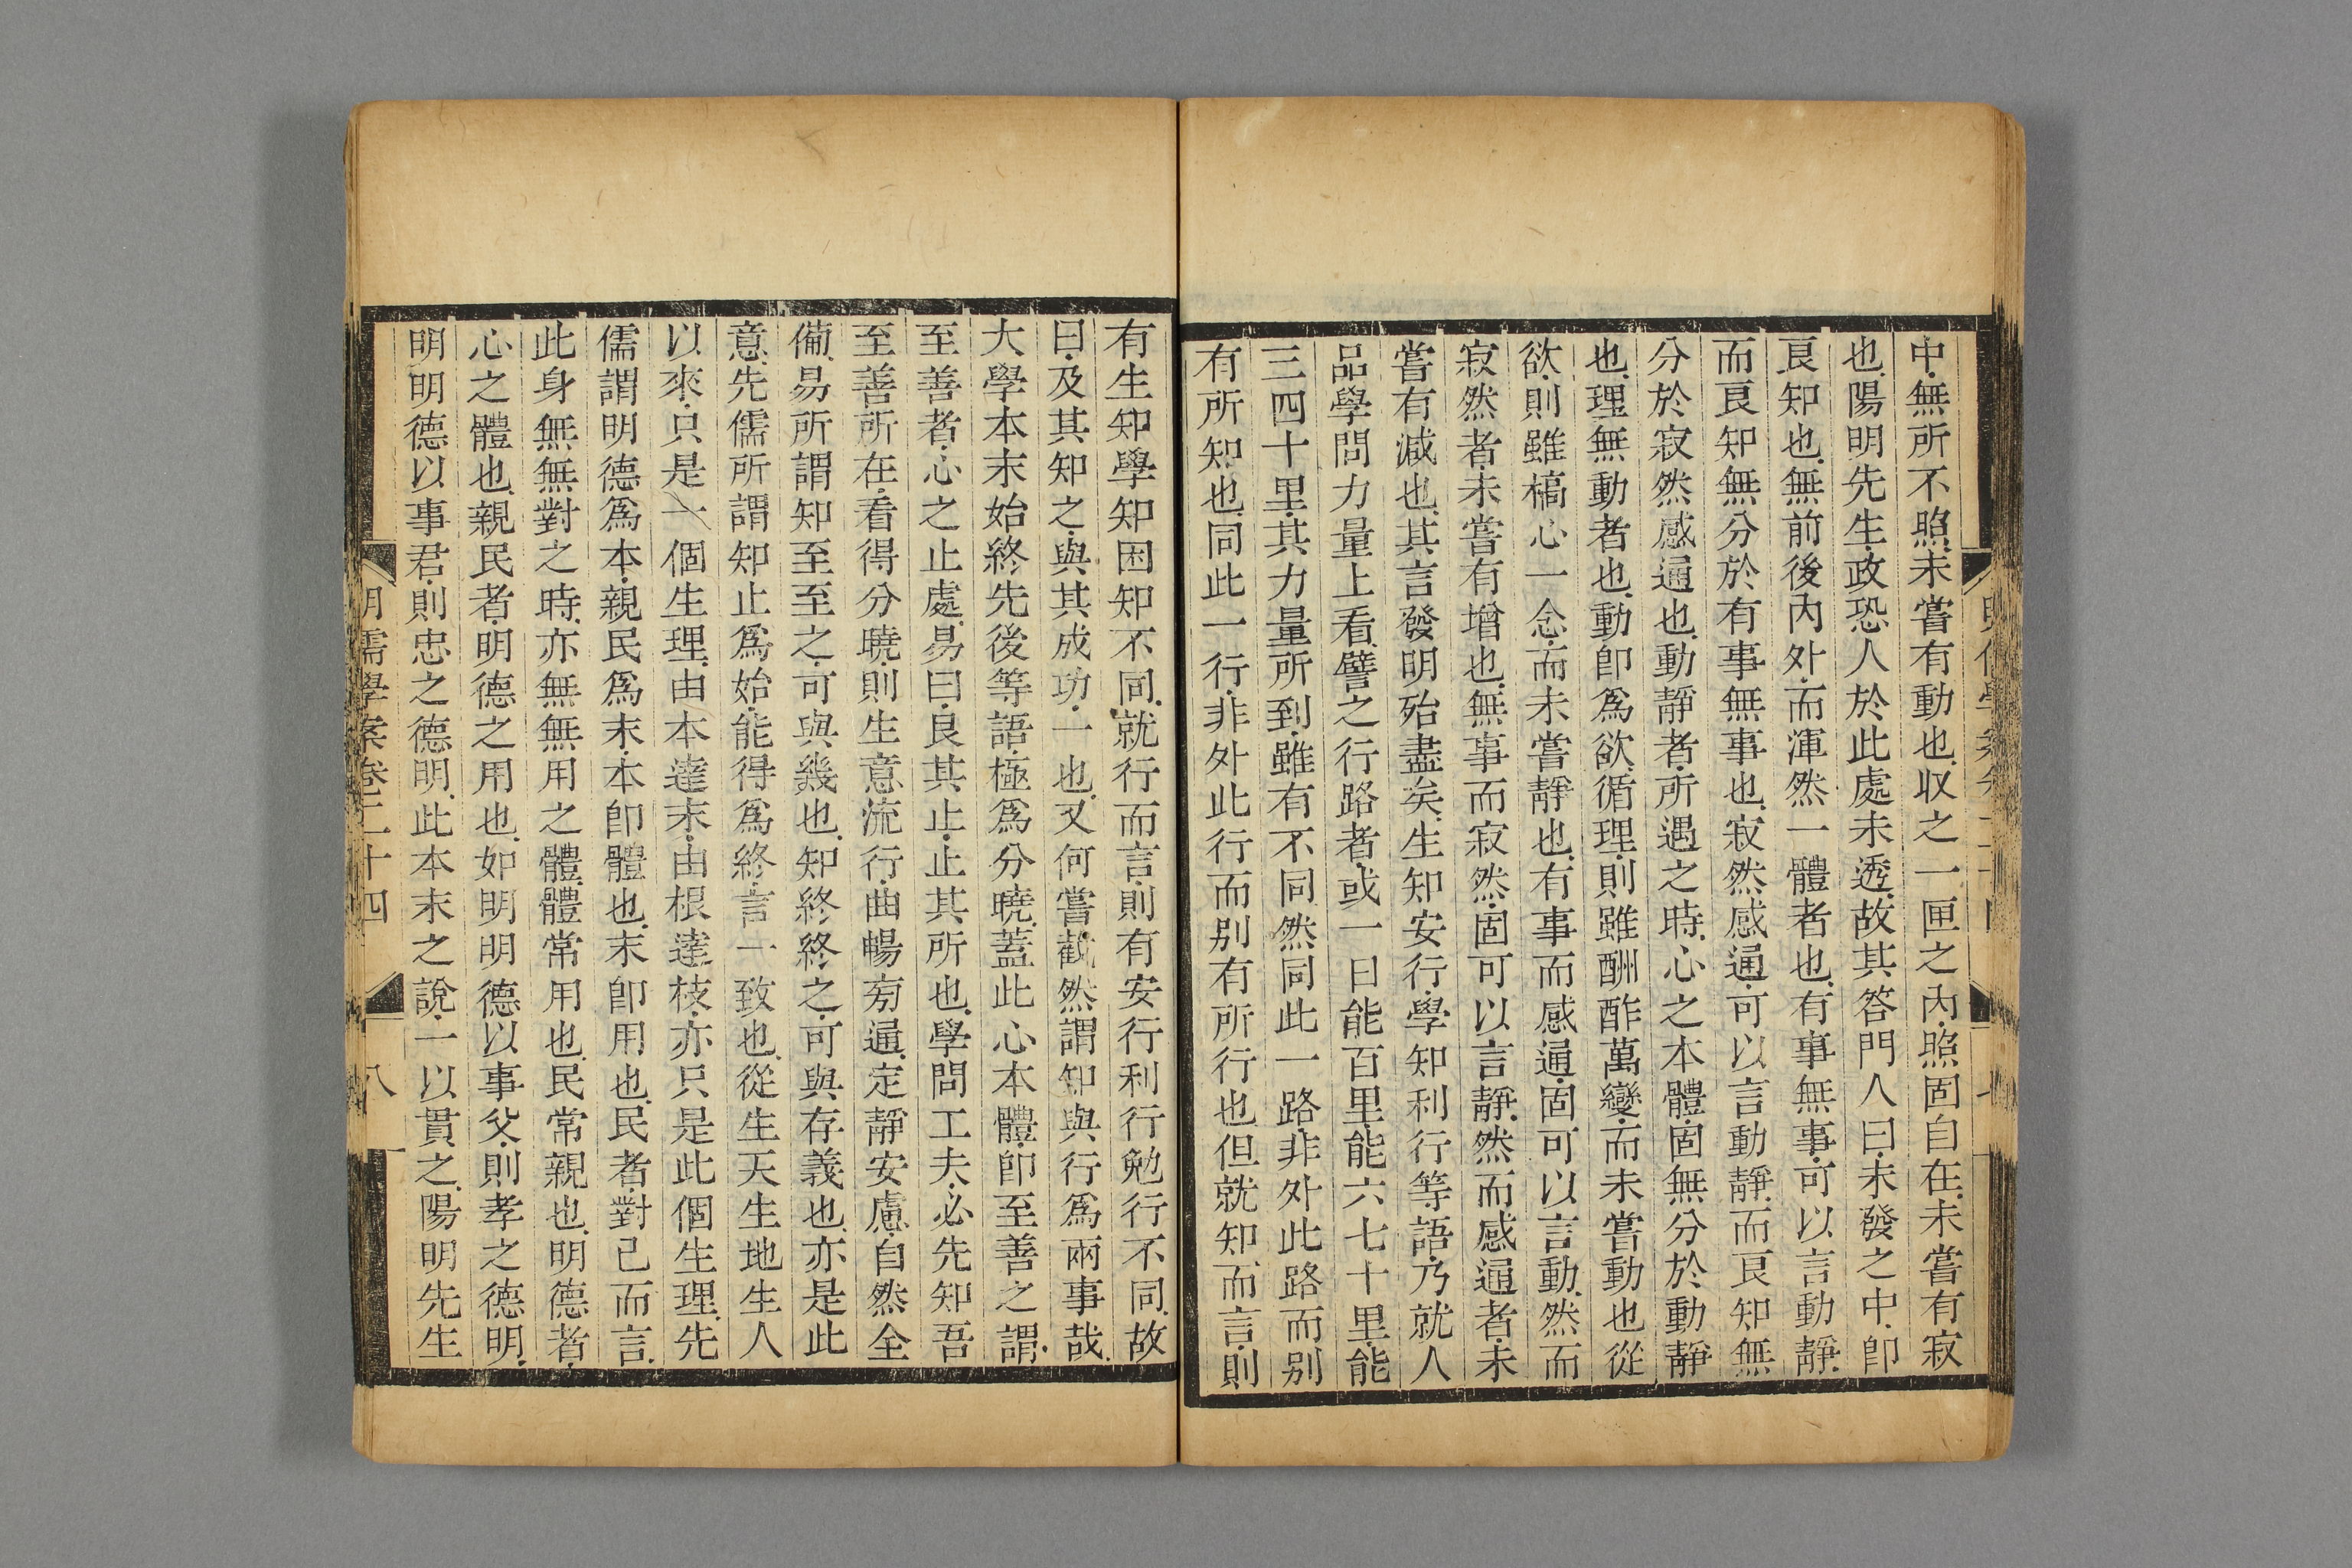 中、無所不照、未嘗有動也、収之一匣之內、照固自在、未嘗有寂
也、陽明先生、政恐人於此處未透、故其答門人曰、未發之中、卽
良知也、無前後內外、而渾然一體者也、有事無事、可以言動靜、
而良知無分於有事無事也、寂然感通、可以言動靜、而良知無
分於寂然感通也、動靜者、所遇之時、心之本體、固無分於動靜
也、理無動者也、動卽爲欲、循理、則雖酬酢萬變、而未嘗動也從
欲、則雖槁心一念、而未嘗靜也、有事而感通、固可以言動、然而
寂然者、未嘗有增也、無事而寂然、固可以言靜、然而感通者、未
嘗有減也、其言發明殆盡矣、生知安行、學知利行等語、乃就人
品學問力量上看、譬之行路者、或一日能百里、能六七十里、能
三四十里、其力量所到、雖有不同然同此一路、非外此路而別
有所知也、同此一行、非外此行而別有所行也但就知、而言、則
有生知學知困知不同、就行而言、則有安行利行勉行不同、故
曰、及其知之、與其成功、一也、又何嘗截然謂知與行爲兩事哉、
大學本末始終先後等語、極爲分曉、蓋此心本體、卽至善之謂、
至善者、心之止處、易曰、艮其止、止其所也、學問工夫、必先知吾
至善所在、看得分曉、則生意流行、曲暢旁通、定靜安慮、自然全
備、易所謂知至至之、可與幾也、知終終之、可與存義也、亦是此
意、先儒所謂知止爲始、能得爲終、言一致也、從生天生地生人
以來、只是一個生理、由本達末、由根達枝、亦只是此個生理、先
儒謂明德爲本、親民爲末、本卽體也、末卽用也、民者、對己而言、
此身無無對之時、亦無無用之體、體常用也、民常親也、明德者、
心之體也、親民者、明德之用也、如明明德以事父、則孝之德明、
明明德以事君、則忠之德明、此本末之說、一以貫之、陽明先生
明儒學案卷二十四
八